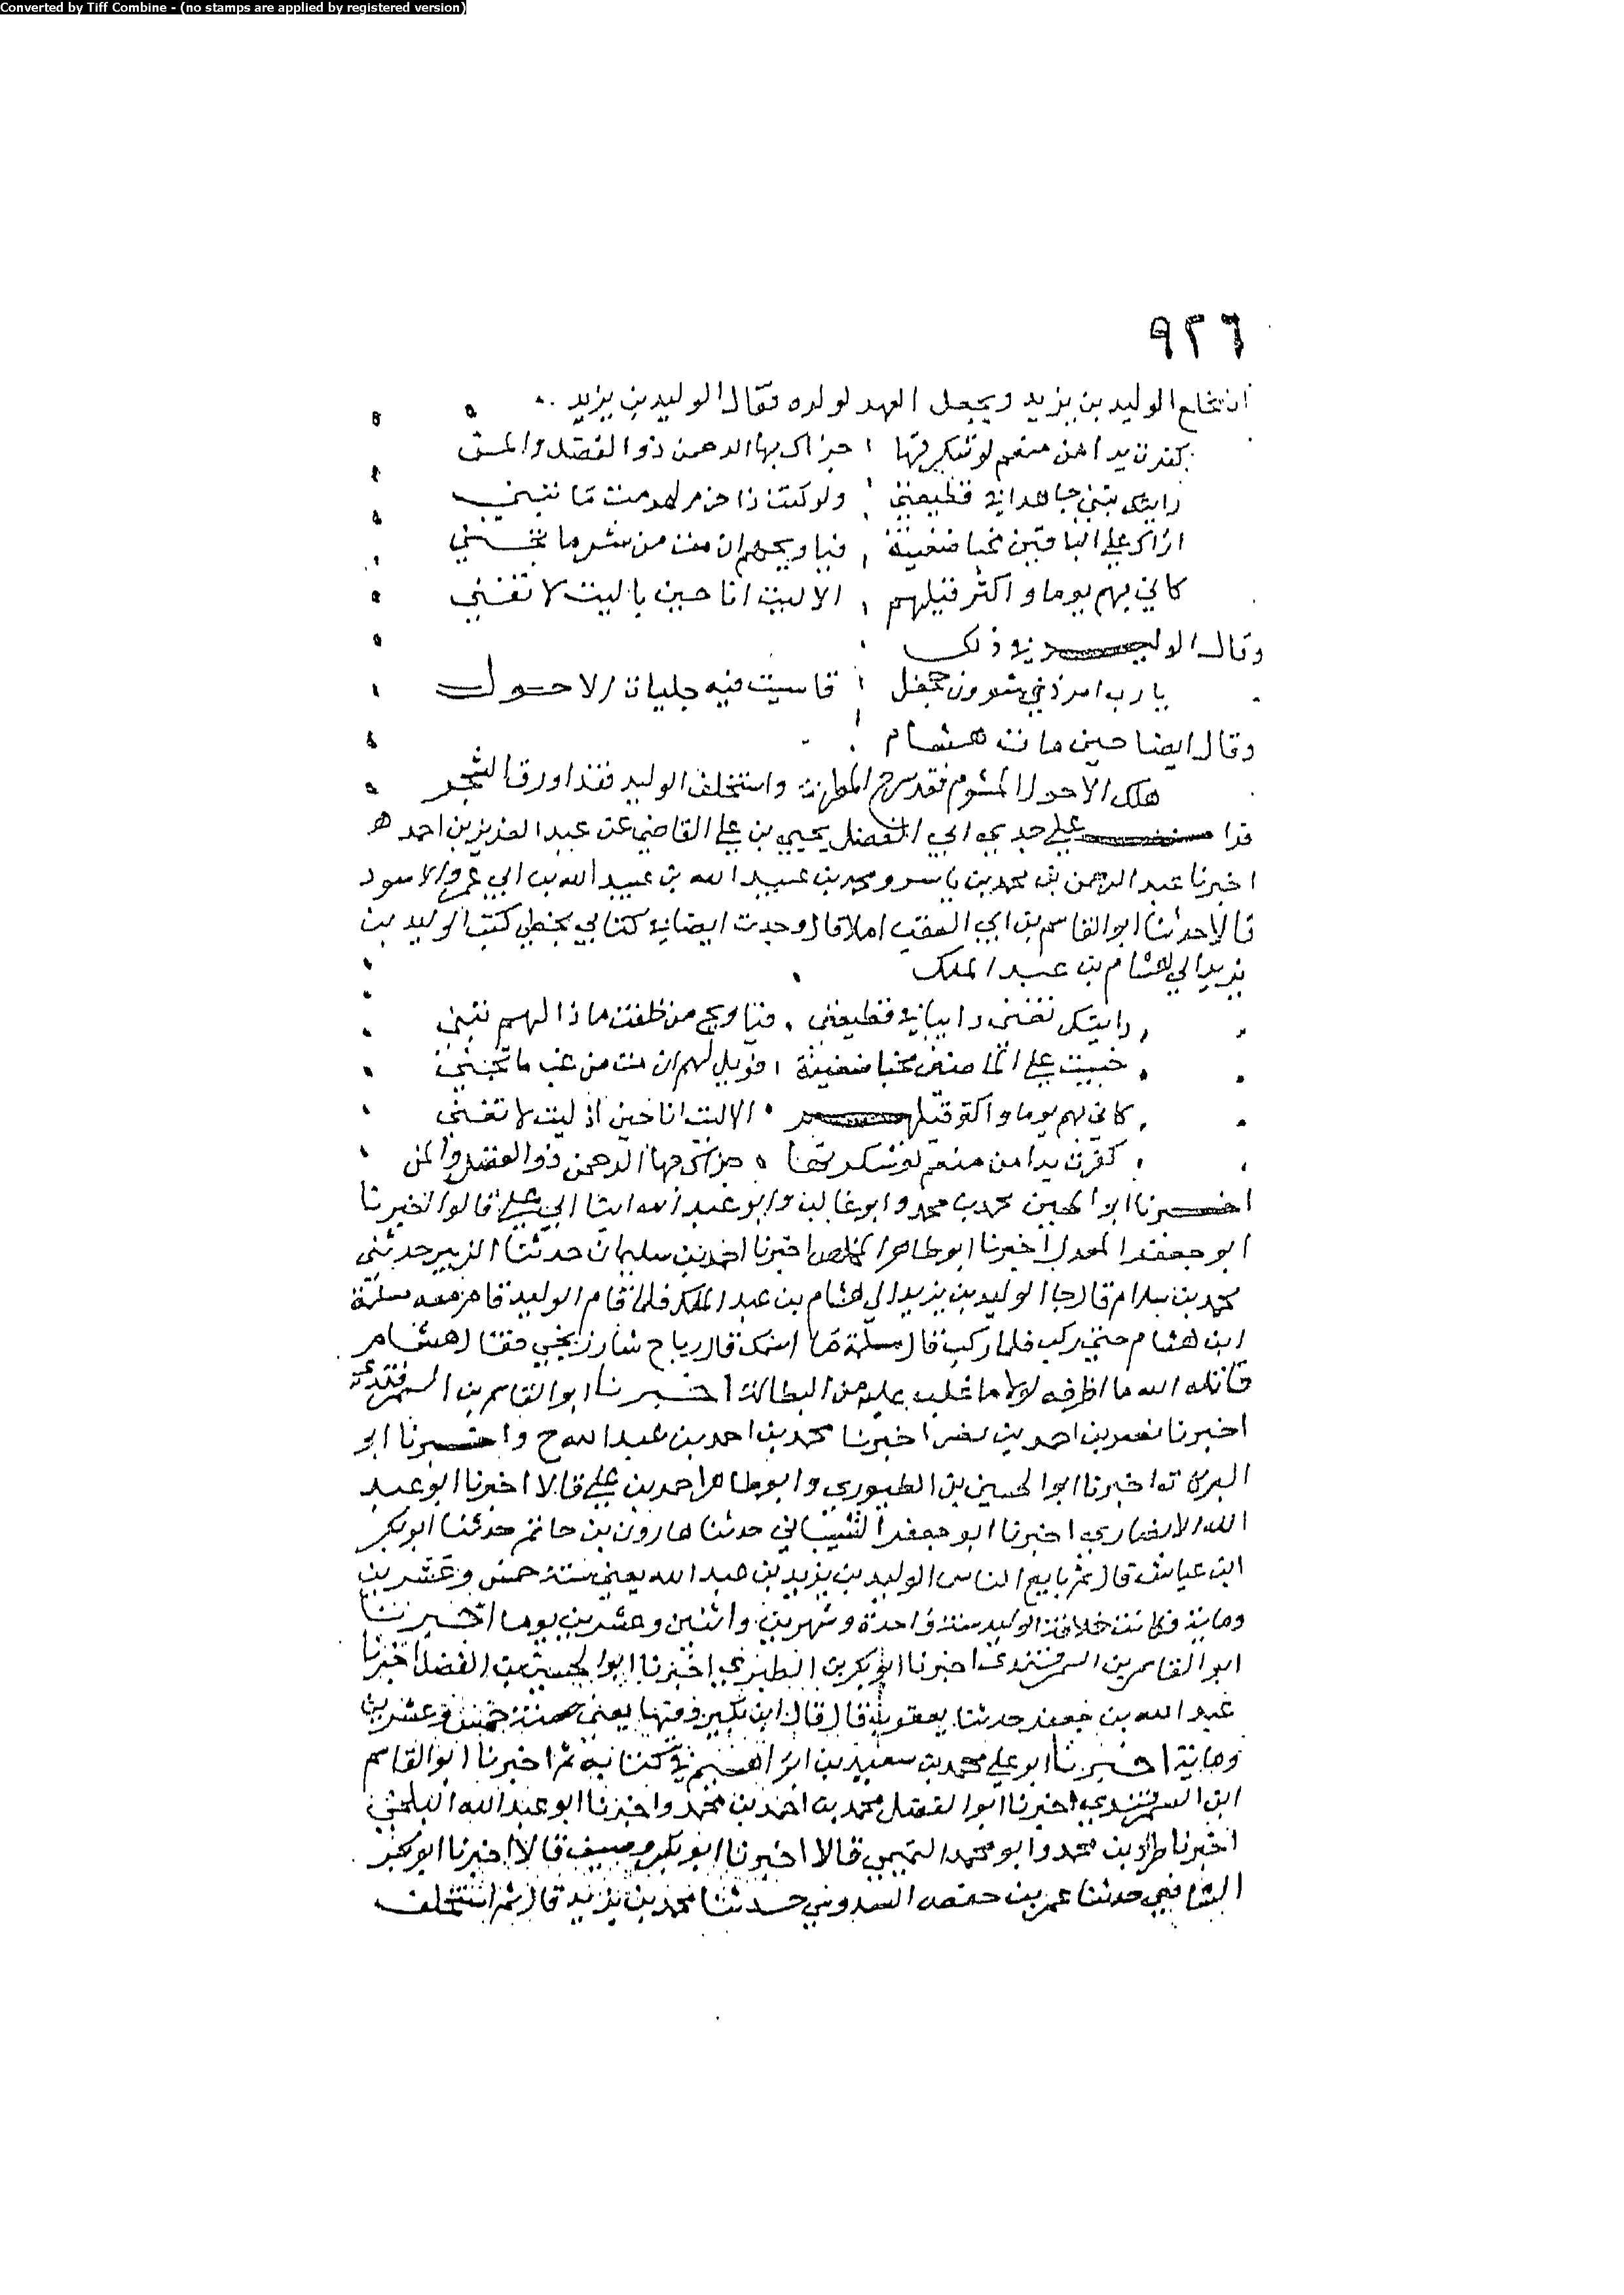 Converted by Tiff Combine - (no stamps are applied by registered version)
٩٢٦
ان يخلع الوليد بن يزيد ويجعل العهد لولده فقال الوليد بن يزيد
كفرت يدا من منعم لو شكرتها جزاك بها الرحمن ذو الفضل والمن
رايتك تبني جاهدا في قطيعتي ولو كنت ذا حزم لهدمت ما تبني
اراك على الباقين تجبي ضغينة فيا ويحهم ان مت من شر ما تجني
كاني بهم يوما واكثر قيلهم الا ليت انا حين يا ليت لا تغني
وقال الوليد في ذلك
يا رب امر ذي شوون جحفل قاسيت فيه جلبات الاحول
وقال ايضا حين مات هشام
هلك الاحول المشوم فقد ارسل المطر ثم استخلف الوليد فقد اورق الشجر
قرات على جدي ابي الفضل يحيى بن علي القاضي عن عبد العزيز بن احمد
اخبرنا عبد الرحمن بن محمد بن ياسر ومحمد بن عبيد الله بن عبيد الله بن ابي عمرو الاسود
قالا حدثنا ابو القاسم بن ابي العقب املا قال وجدت ايضا في كتابي بخطي كتب الوليد بن
يزيد الي هشام بن عبد الملك
رايتك تبني دايبا في قطيعتي فيا ويح من خلفت ماذا لهم تبني
على الماضين تجبا ضغينة فويل لهم ان مت من غب ما تجني
كاني بهم يوما واكثر قيلهم الا ليت انا حين اذ ليت لا تغني
كفرت يدا من منعم لو شكرتها جزاك بها الرحمن ذو الفضل والمن
اخبرنا ابو الحسين محمد بن محمد وابو غالب وابو عبد الله ابنا ابي علي قالوا اخبرنا
ابو جعفر المعدل اخبرنا ابو طاهر المخلص اخبرنا احمد بن سليمان حدثنا الزبير حدثني
محمد بن سلام قال جا الوليد بن يزيد الي هشام بن عبد الملك فلما قام الوليد قام معه مسلمة
ابن هشام حتى ركب فلما ركب قال مسلمة ما اسمك قال رياح شار زنجي فقال هشام
قاتله الله ما اظرفه لولا ما غلب عليه من البطالة اخبرنا ابو القاسم بن السمرقندي
اخبرنا نصر بن احمد بن نصر اخبرنا محمد بن احمد بن عبد الله ح واخبرنا ابو
البركات اخبرنا ابو الحسين بن الطيوري وابو طاهر احمد بن علي قالا اخبرنا ابو عبد
الله الانصاري اخبرنا ابو جعفر الشيباني حدثنا هارون بن حاتم حدثنا ابو بكر
ابن عياش قال ثم بايع الناس الوليد بن يزيد بن عبد الله يعني سنة خمس وعشرين
وماية فكانت خلافة الوليد سنة واحدة وشهرين واثنين وعشرين يوما اخبرنا
ابو القاسم بن السمرقندي اخبرنا ابو بكر بن الطبري اخبرنا ابو الحسين بن الفضل اخبرنا
عبد الله بن جعفر حدثنا يعقوب قال قال ابن بكير وفيها يعني سنة خمس وعشرين
وماية اخبرنا ابو علي محمد بن سعيد بن ابراهيم في كتابه ثم اخبرنا ابو القاسم
ابن السمرقندي اخبرنا ابو الفضل محمد بن احمد بن محمد واخبرنا ابو عبد الله البلخي
اخبرنا طراد بن محمد وابو محمد التميمي قالا اخبرنا ابو بكر وصيف قالا اخبرنا ابو بكر
الشافعي حدثنا عمر بن حفص السدوسي حدثنا محمد بن يزيد قال ثم استخلف